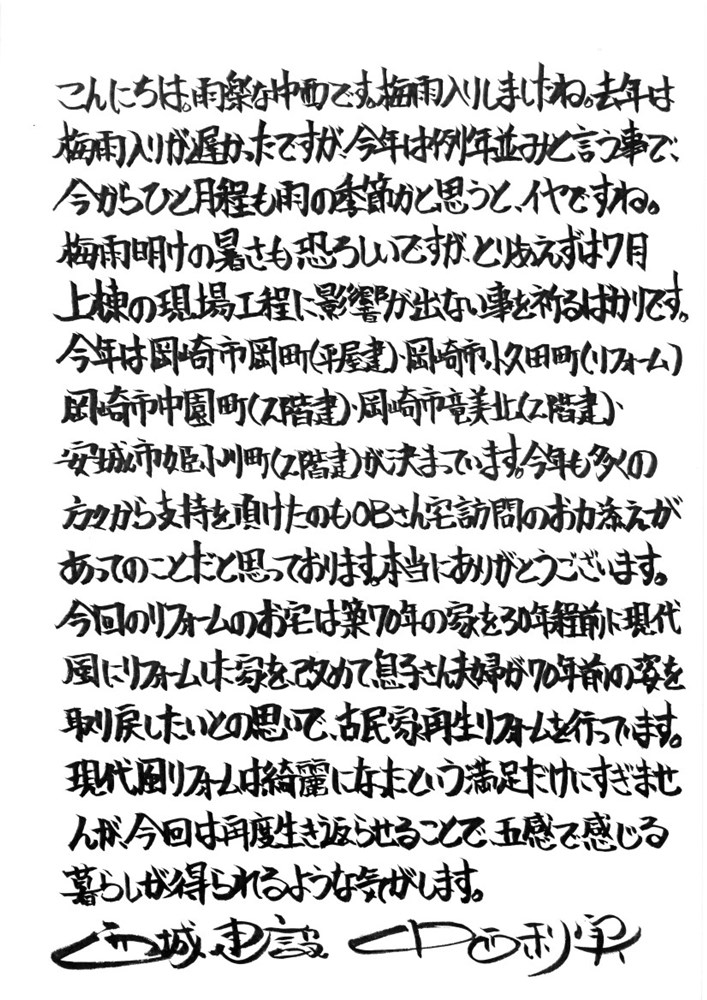 こんにちは。雨楽な中西です。梅雨入りしましたね。去年は
梅雨入りが遅かったですが、今年は例年並みと言う事で、
今からひと月程も雨の季節かと思うと、イヤですね。
梅雨明けの暑さも恐ろしいですが、とりあえずは7月
上棟の現場工程に影響が出ない事を祈るばかりです。
今年は岡崎市岡町(平屋建)、岡崎市小久田町(リフォーム)
岡崎市中園町(2階建)、岡崎市竜美北(2階建)、
安城市姫小川町(2階建)が決まっています。今年も多くの
方々から支持を頂けたのもOBさん宅訪問のお力添えが
あってのことだと思っております。本当にありがとうございます。
今回のリフォームのお宅は築70年の家を30年程前に現代
風にリフォームした家を、改めて息子さん夫婦が70年前の姿を
取り戻したいとの思いで、古民家再生リフォームを行っています。
現代風リフォームは綺麗になったという満足だけにすぎませ
んが、今回は再度生き返らせることで、五感で感じる
暮らしが得られるような気がします。
西城建設 中西利